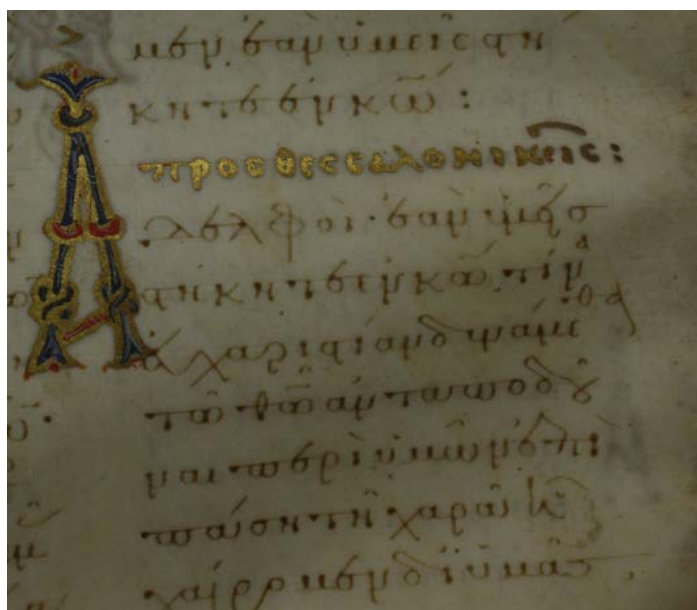 μεν ἐὰν ὑμεῖς στη
κητε ἐν κω̅ :
προς θεσσαλονικεῖς :
Ἀδελφοὶ · ἐὰν
στηκητε ἐν κω̅
χαριστίαν δυνάμεθα
τῶ θω̅ ἀνταποδοῦ
ναι περὶ ὑμῶν ἐπὶ
πάση τῆ χαρᾶ
χαίρομεν δι ὑμᾶς